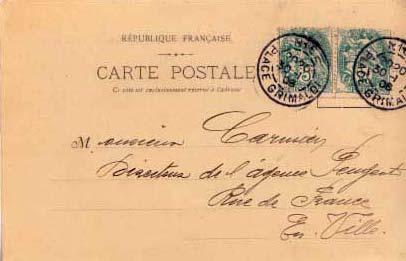 RÉPUBLIQUE FRANÇAISE
CARTE POSTALE
Ce côté est exclusivement réservé à l'adresse
PLACE GRIMALDI
PLACE GRIMALDI
Monsieur
Directeur de l'agence
Rue de France
En Ville.